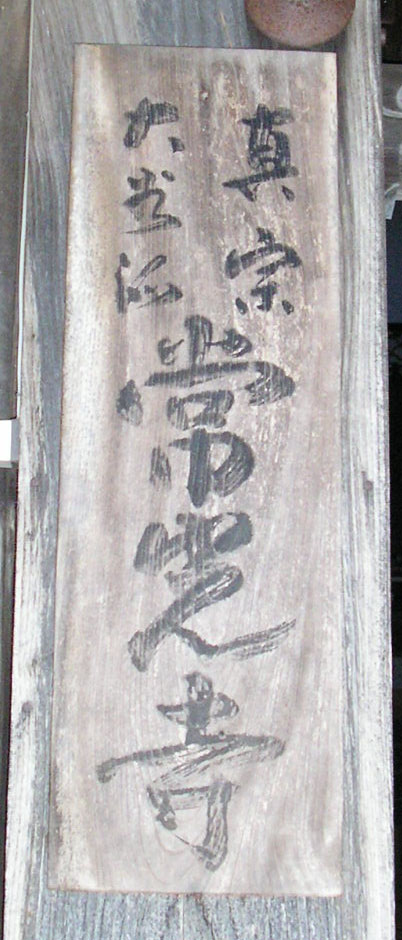 真宗
大谷派
常光寺